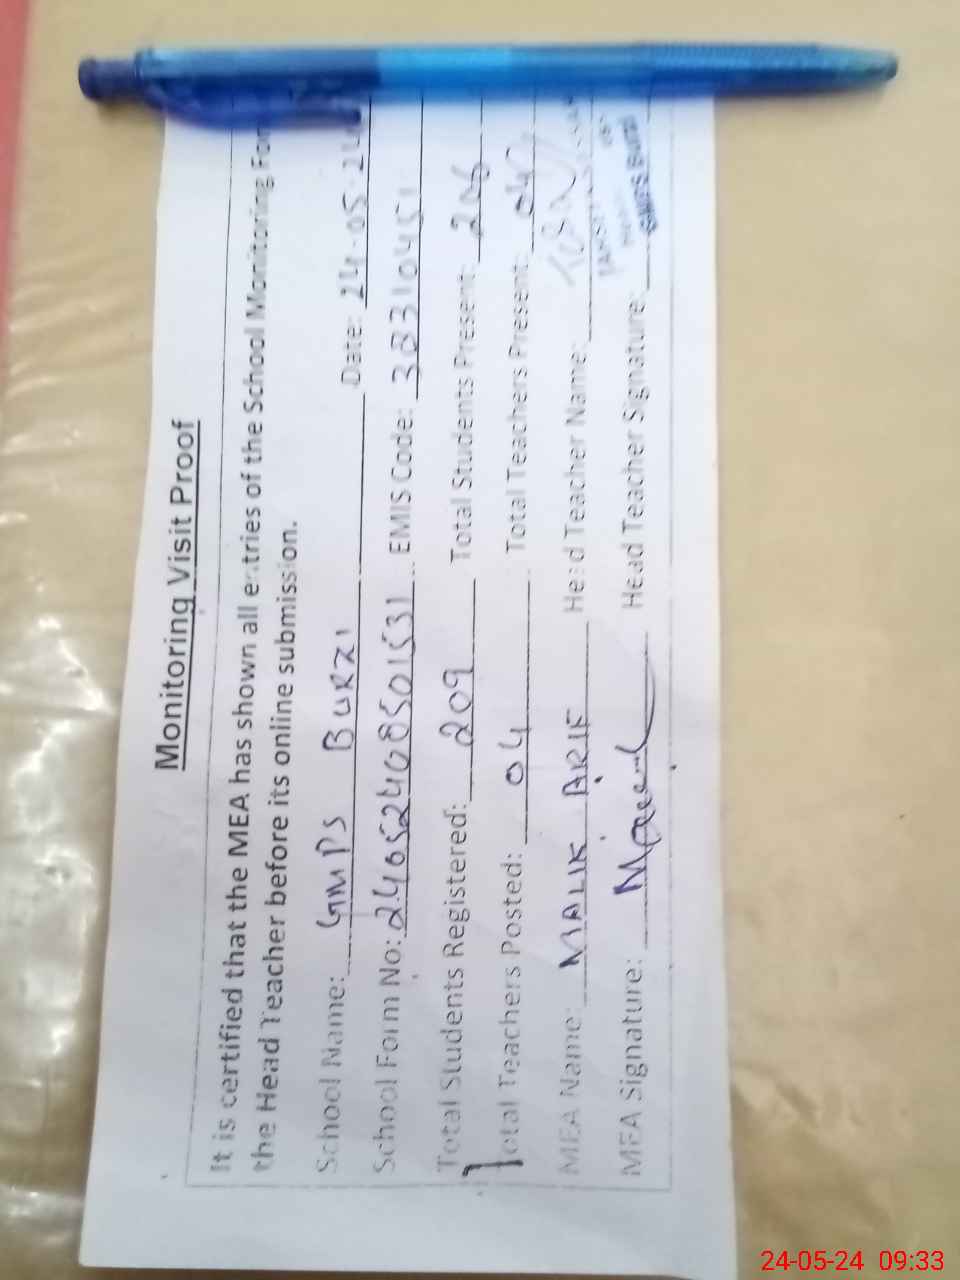 Monitoring Visit Proof
It is certified that the MEA has shown all entries of the School Monitoring For
the Head Teacher before its online submission.
School Name: GMPS BURZI Date: 24-05-24
School Form No: 24052408501531 EMIS Code: 38310451
Total Students Registered: 209 Total Students Present: 206
Total Teachers Posted: 04 Total Teachers Present: 04
MEA Name: MALIK ARIF Head Teacher Name:
MEA Signature: Head Teacher Signature:
24-05-24 09:33